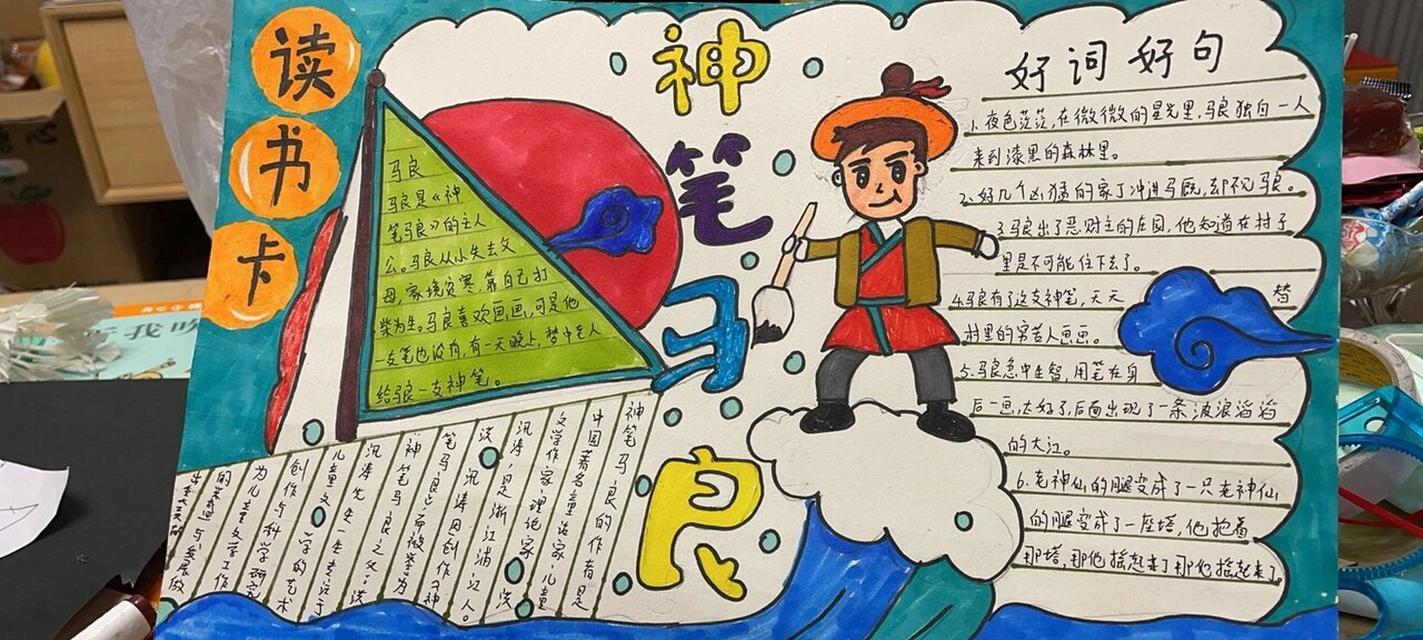 读
书
卡
神
笔
马
良
马良
马良是《神
笔马良》的主人
公。马良从小失去父
母，家境贫寒，靠自己打
柴为生。马良喜欢画画，可是他
一支笔也没有，有一天晚上，梦中老人
给马良一支神笔。
神笔马良的作者是
中国著名童话家、儿童
文学作家、理论家
汛涛，是浙江浦江人。
洪汛涛因创作《神
笔马良》而被誉为
神笔马良之父。洪
汛涛先生生于
儿童文学的艺术
创作与科学研究
为儿童文学工作
的
好词好句
1.夜色茫茫，在微微的星光里，马良独自一人
来到漆黑的森林里。
2.好几个凶猛的家丁冲进马厩，却不见马良。
3.马良出了恶财主的庄园，他知道在村子
里是不可能住下去了。
4.马良有了这支神笔，天天 替
村里的穷苦人画画。
5.马良急中生智，用笔在身
后一画，太好了，后面出现了一条波浪滔滔
的大江。
6.老神仙的腿变成了一只老神仙
的腿变成了一座塔，他抱着
那塔，那他摇起来了那他摇起来了